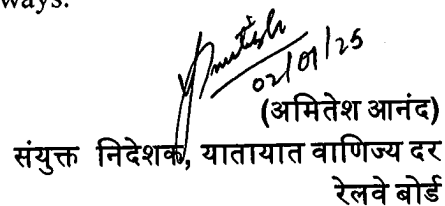 ways.
Amitesh
02/01/25
(अमितेश आनंद)
संयुक्त निदेशक, यातायात वाणिज्य दर
रेलवे बोर्ड